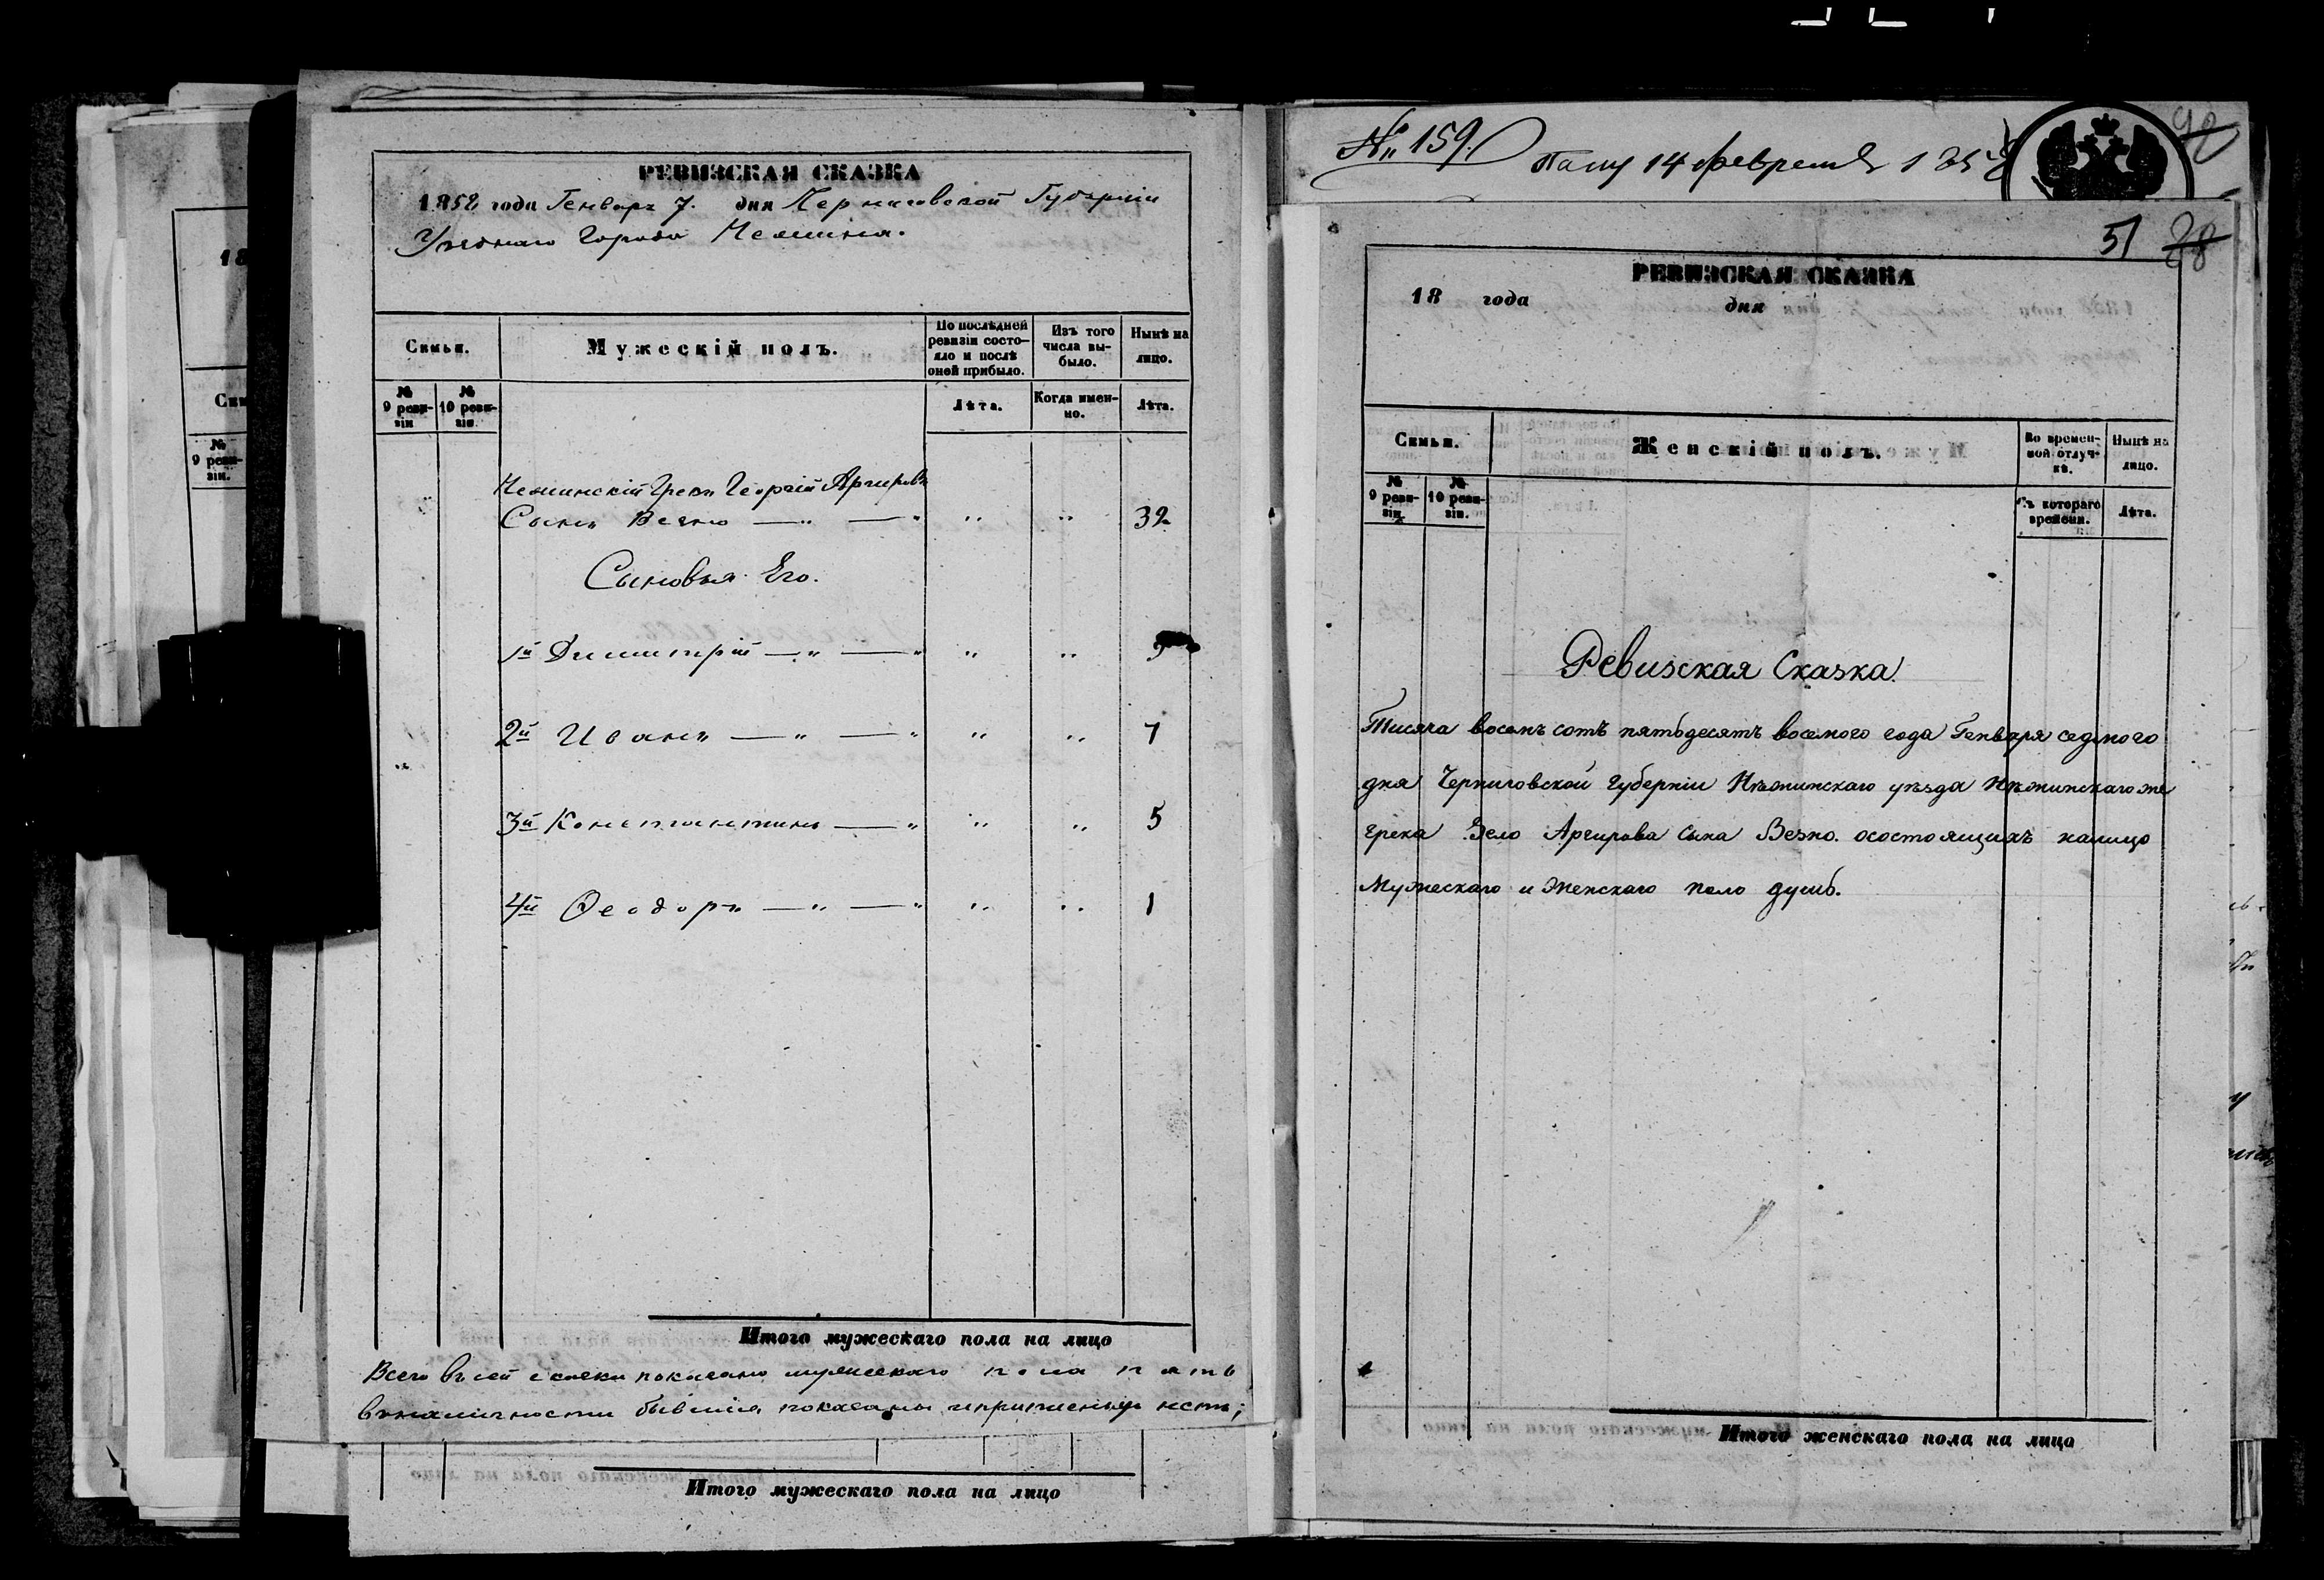 РЕВИЗСКАЯ СКАЗКА
1858 года Генваря 7. дня Черниговской Губерніи
Уезднаго Города Нежина.
Семьи.
Мужескій полъ.
По послѣдней ревизіи состояло и послѣ оной прибыло.
Изъ того числа выбыло.
Нынѣ на лицо.
№ 9 ревизіи
№ 10 ревизіи.
Лѣта.
Когда именно.
Лѣта.
Нежинскій Грекъ Георгій Аргировъ
Сынъ Везно — „ — „ „ „ 32
Сыновья Его.
1й Димитрій — „ — „ „ „ 9
2й Иванъ — „ — „ „ „ 7
3й Константинъ — „ „ „ 5
4й Феодоръ — „ — „ „ „ 1
Итого мужескаго пола на лицо
Всего въ сей сказки показано мужескаго пола пять
въ наличности бывшія показаны и
Итого мужескаго пола на лицо
18
№ 9 ревизіи.
№ 159.
14 февраля 185
51 28
РЕВИЗСКАЯ СКАЗКА
18 года дня
Семьи.
Женскій полъ.
Во временной отлучкѣ.
Нынѣ на лицо.
№ 9 ревизіи.
№ 10 ревизіи.
Съ котораго времени.
Лѣта.
Ревизская Сказка.
Тисяча восемъ сотъ пятьдесятъ восемого года Генваря седмого
дня Черниговской губерніи Нѣжинскаго уѣзда Нѣжинскаго же
грека Зело Аргирова сына Везно. осостоящихъ налицо
Мужескаго и Женскаго поло душь.
Итого женскаго пола на лицо